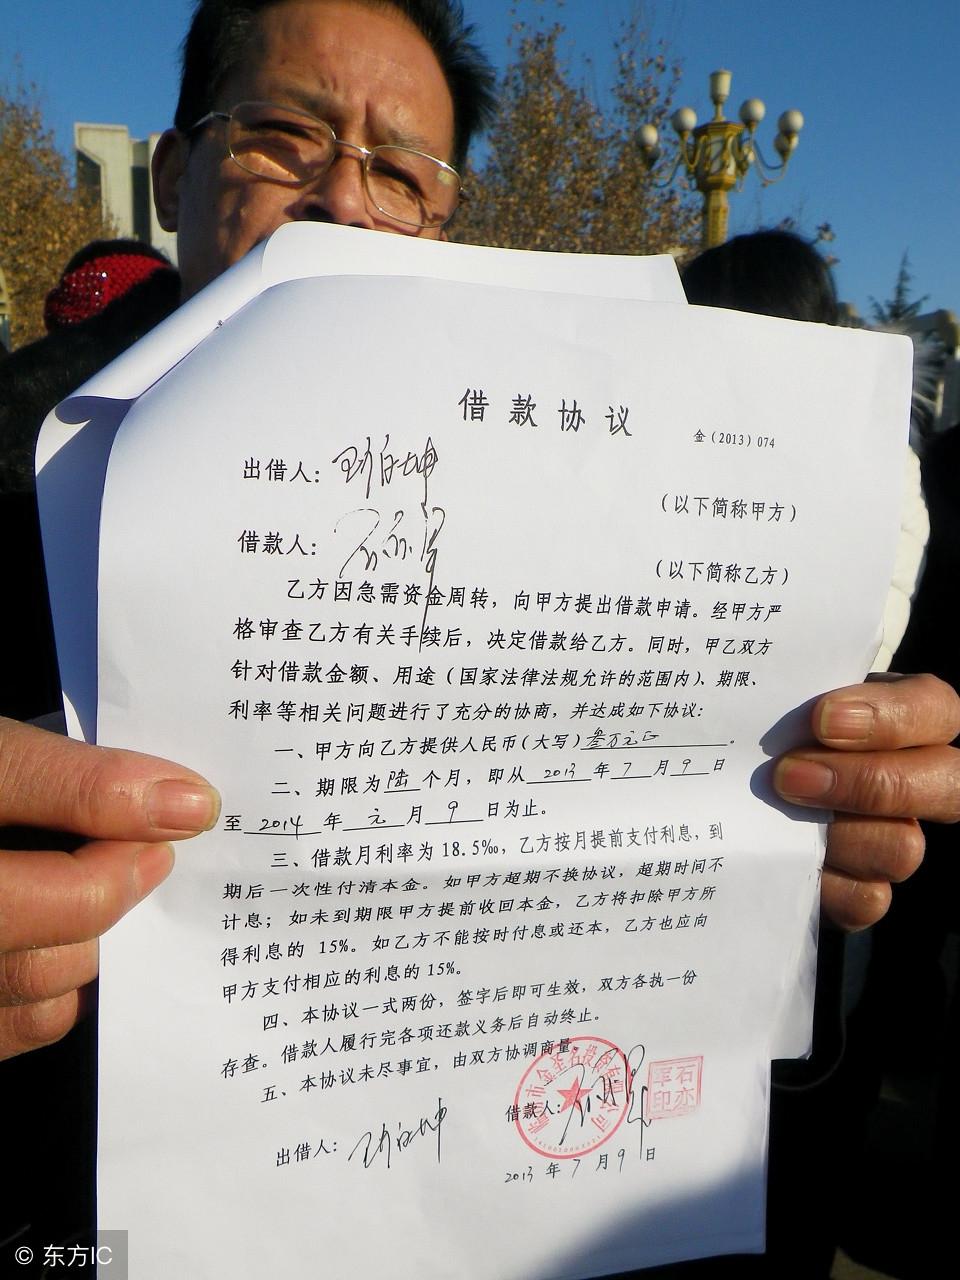 借款协议
金(2013)074
出借人：
(以下简称甲方)
借款人：
(以下简称乙方)
乙方因急需资金周转，向甲方提出借款申请。经甲方严
格审查乙方有关手续后，决定借款给乙方。同时，甲乙双方
针对借款金额、用途(国家法律法规允许的范围内)、期限、
利率等相关问题进行了充分的协商，并达成如下协议：
一、甲方向乙方提供人民币(大写)叁万元正。
二、期限为陆个月，即从2013年7月9日
至2014年元月9日为止。
三、借款月利率为18.5‰，乙方按月提前支付利息，到
期后一次性付清本金。如甲方超期不换协议，超期时间不
计息；如未到期限甲方提前收回本金，乙方将扣除甲方所
得利息的15%。如乙方不能按时付息或还本，乙方也应向
甲方支付相应的利息的15%。
四、本协议一式两份，签字后即可生效，双方各执一份
存查。借款人履行完各项还款义务后自动终止。
五、本协议未尽事宜，由双方协调商量。
出借人：
借款人：
石亦军印
2013年7月9日
© 东方IC